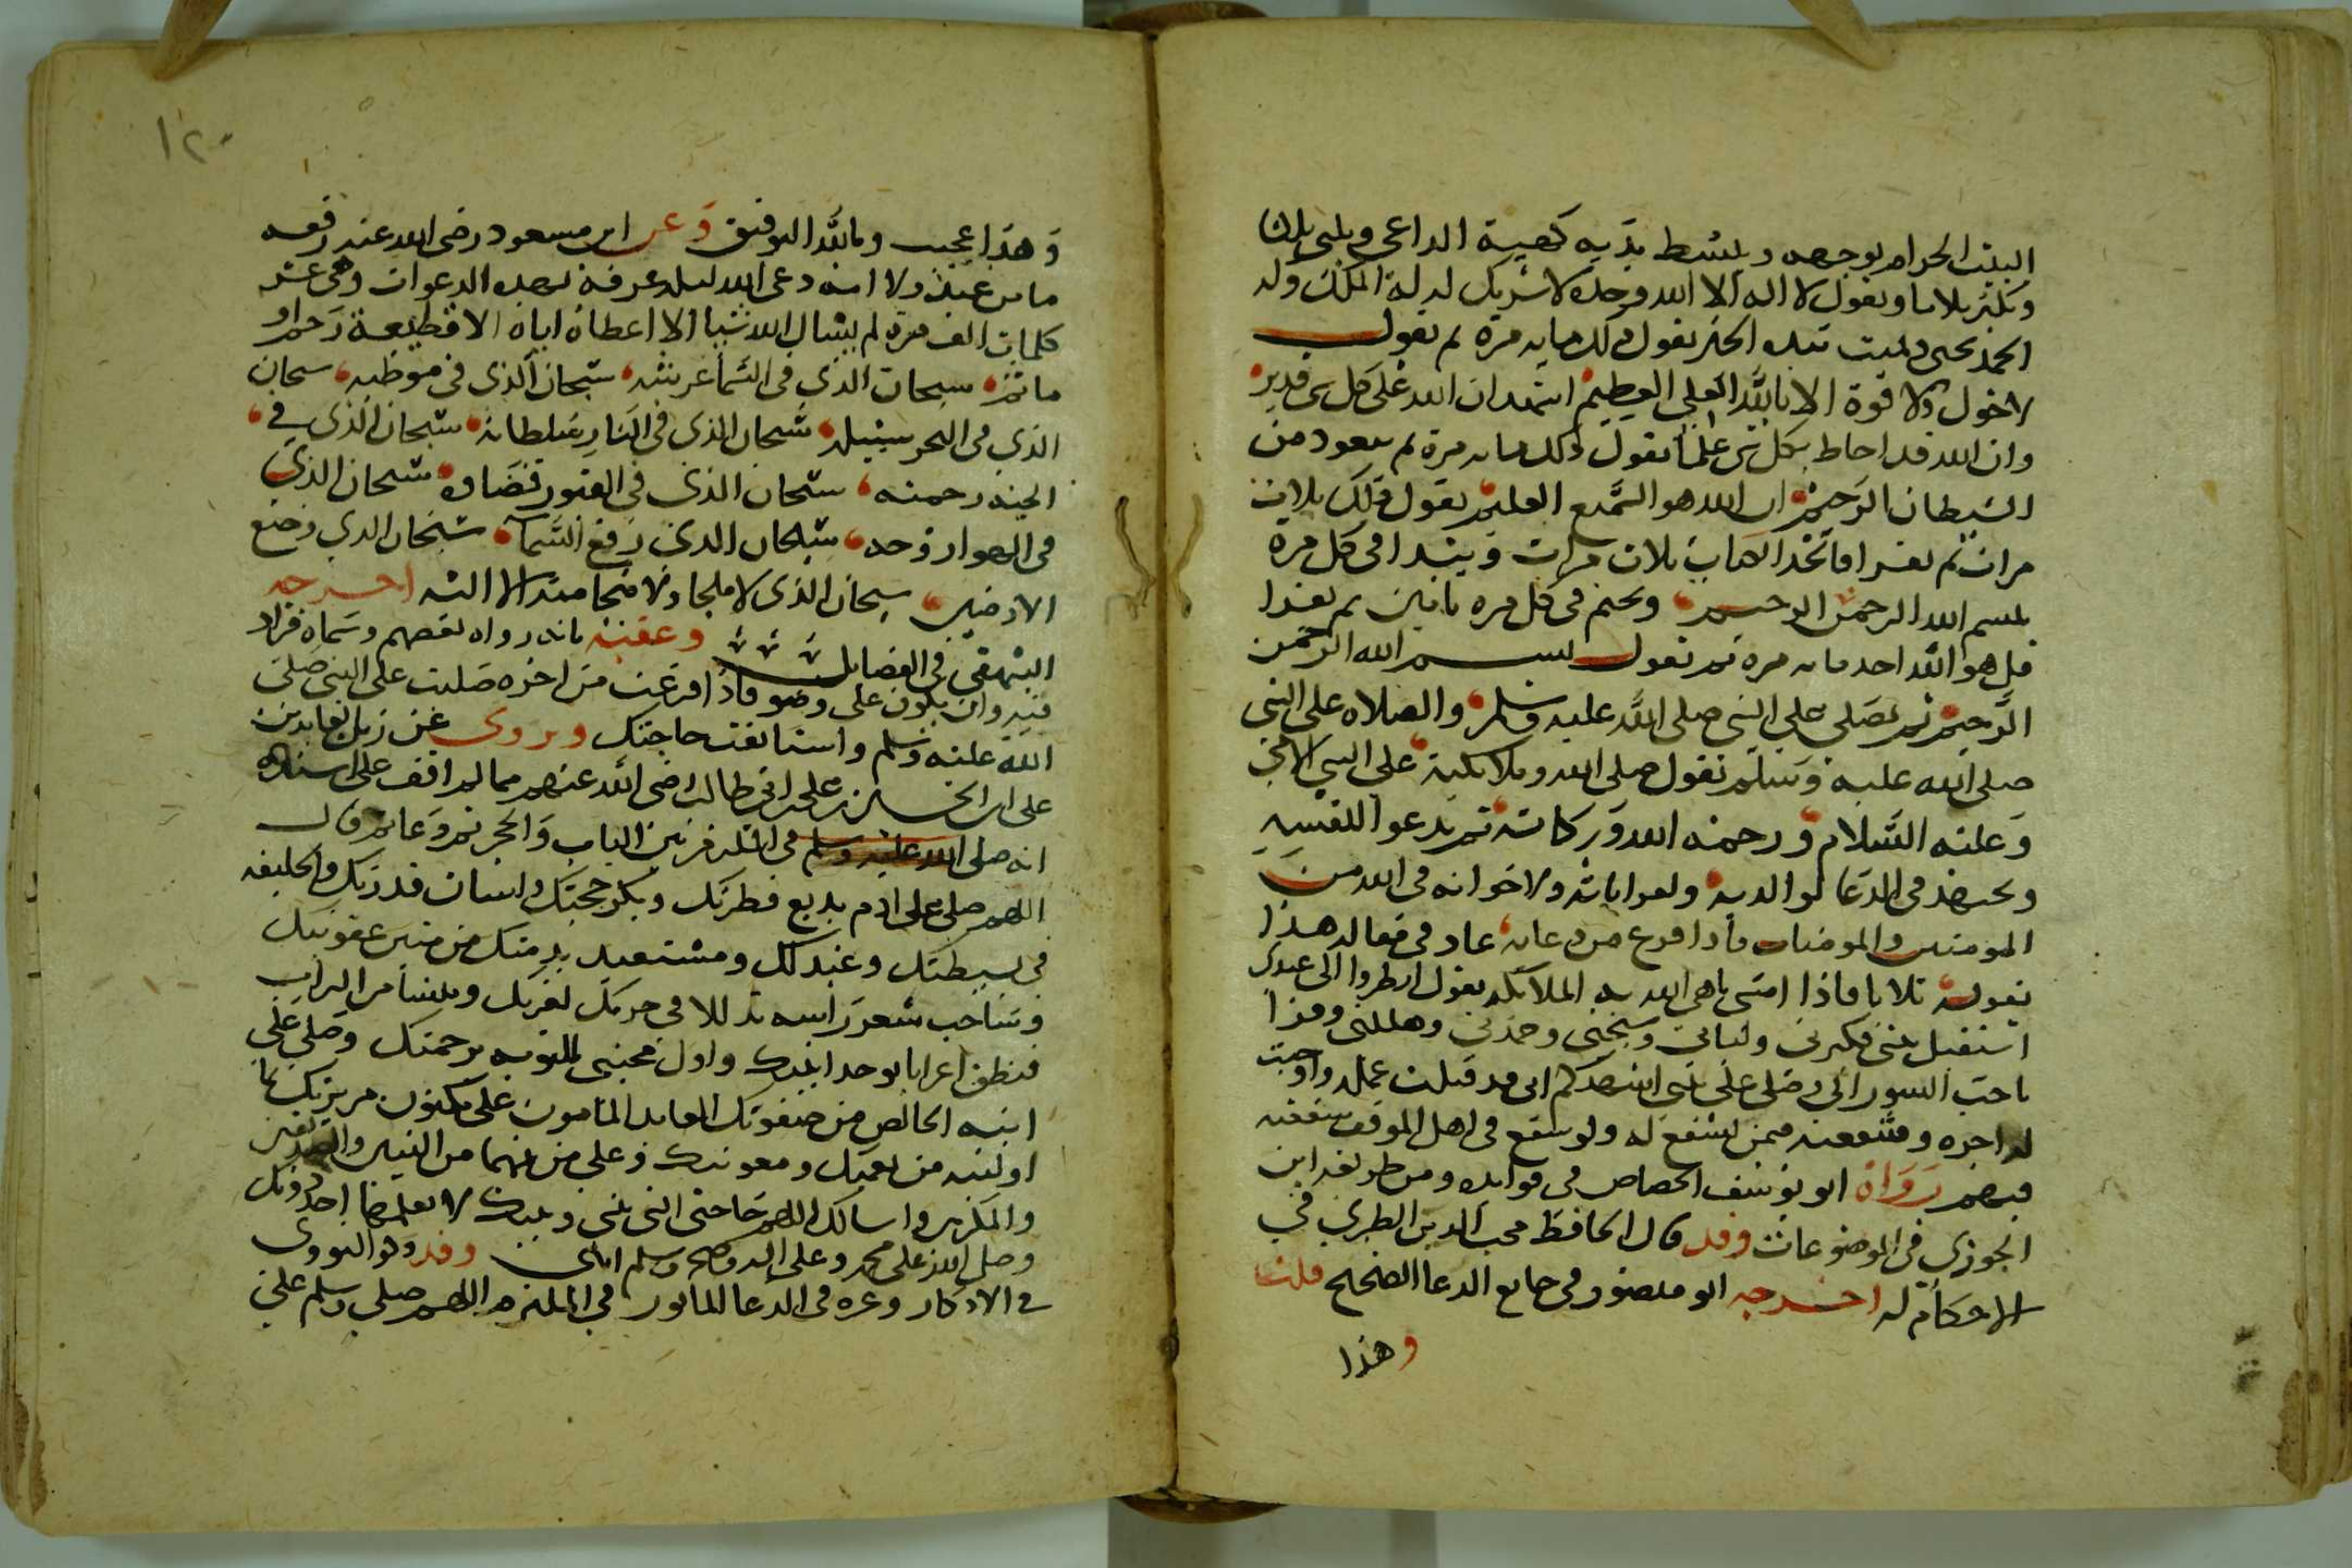 البيت الحرام بوجهه ويبسط يديه كهيية الداعي ويلبي ثلاثا
ويكبر ثلاثا ويقول لا اله الا الله وحده لا شريك له له الملك وله
الحمد يحيي ويميت بيده الخير يقول ذلك ماية مرة ثم يقول
لا حول ولا قوة الا بالله العلي العظيم اشهد ان الله على كل شي قدير
وان الله قد احاط بكل شي علما يقول ذلك ماية مرة ثم يتعوذ من
الشيطان الرجيم ان الله هو السميع العليم يقول ذلك ثلاث
مرات ثم يقرا فاتحة الكتاب ثلاث مرات ويبتدا في كل مرة
ببسم الله الرحمن الرحيم ويختم في كل مرة بامين ثم يقرا
قل هو الله احد ماية مرة ثم يقول بسم الله الرحمن
الرحيم ثم يصلي على النبي صلى الله عليه وسلم والصلاة على النبي
صلى الله عليه وسلم يقول صلى الله وملايكته على النبي الامي
وعليه السلام ورحمة الله وبركاته ثم يدعوا لنفسه
ويجتهد في الدعا لوالديه ولقراباته ولاخوانه في الله من
المومنين والمومنات فاذا فرغ من دعايه عاد في مقاله هذا
يقوله ثلاثا فاذا امسى باهى الله به الملايكة يقول انظروا الى عبدي
استقبل بيتي فكبرني ولباني وسبحني وحمدني وهللني وقرا
باحب السور الي وصلى على نبيي اشهدكم اني قد قبلت عمله واوجبت
له اجره وشفعته فيمن يشفع له ولو شفع في اهل الموقف شفعته
فيهم رواه ابو يوسف الجصاص في فوايده ومن طريقه ابن
الجوزي في الموضوعات وقد قال الحافظ محب الدين الطبري في
الاحكام له اخرجه ابو منصور في جامع الدعا الصحيح قلت
وهذا
١٢٠
وهذا عجيب وبالله التوفيق وعن ابن مسعود رضي الله عنه رفعه
ما من عبد ولا امة دعى الله ليلة عرفة بهذه الدعوات وهي عشر
كلمات الف مرة لم يسال الله شيا الا اعطاه اياه الا قطيعة رحم او
ماثم سبحان الذي في السما عرشه سبحان الذي في موطيه سبحان
الذي في البحر سبيله سبحان الذي في النار سلطانه سبحان الذي في
الجنة رحمته سبحان الذي في القبور قضاوه سبحان الذي
في الهوا روحه سبحان الذي رفع السما سبحان الذي وضع
الارضين سبحان الذي لا ملجا ولا منجا منه الا اليه اخرجه
البيهقي في الفضايل وعقبه بانه رواه بعضهم وسماه فزاد
فيه وان يكون على وضو فاذا فرغت من اخره صليت على النبي صلى
الله عليه وسلم واستانفت حاجتك ويروى عن زين العابدين
علي ابن الحسين بن علي ابن ابي طالب رضي الله عنهم مما لم اقف على اسناده
انه صلى الله عليه وسلم في الملتزم بين الباب والحجر ثم دعا ثم قال
اللهم صل على ادم بديع فطرتك وبكر حجتك ولسان قدرتك والخليفة
في بسيطتك وعبد لك ومستعيذ بذمتك من متين عقوبتك
وساحب شعر راسه تذللا في حرمك لعزتك ومنشا من التراب
فنطق اعرابا بوحدانيتك واول مجتبى للتوبة برحمتك وصل على
ابنه الخالص من صفوتك العابد المامون على مكنون سريرتك بما
اوليته من نعمتك ومعونتك وعلى من بينهما من النبيين والصديقين
والمكرمين واسالك اللهم حاجتي التي بيني وبينك لا يعلمها احد دونك
وصلى الله على محمد وعلى اله وصحبه وسلم امين وقد ذكر النووي
في الاذكار وغيره في الدعا الماثور في الملتزم اللهم صل وسلم على